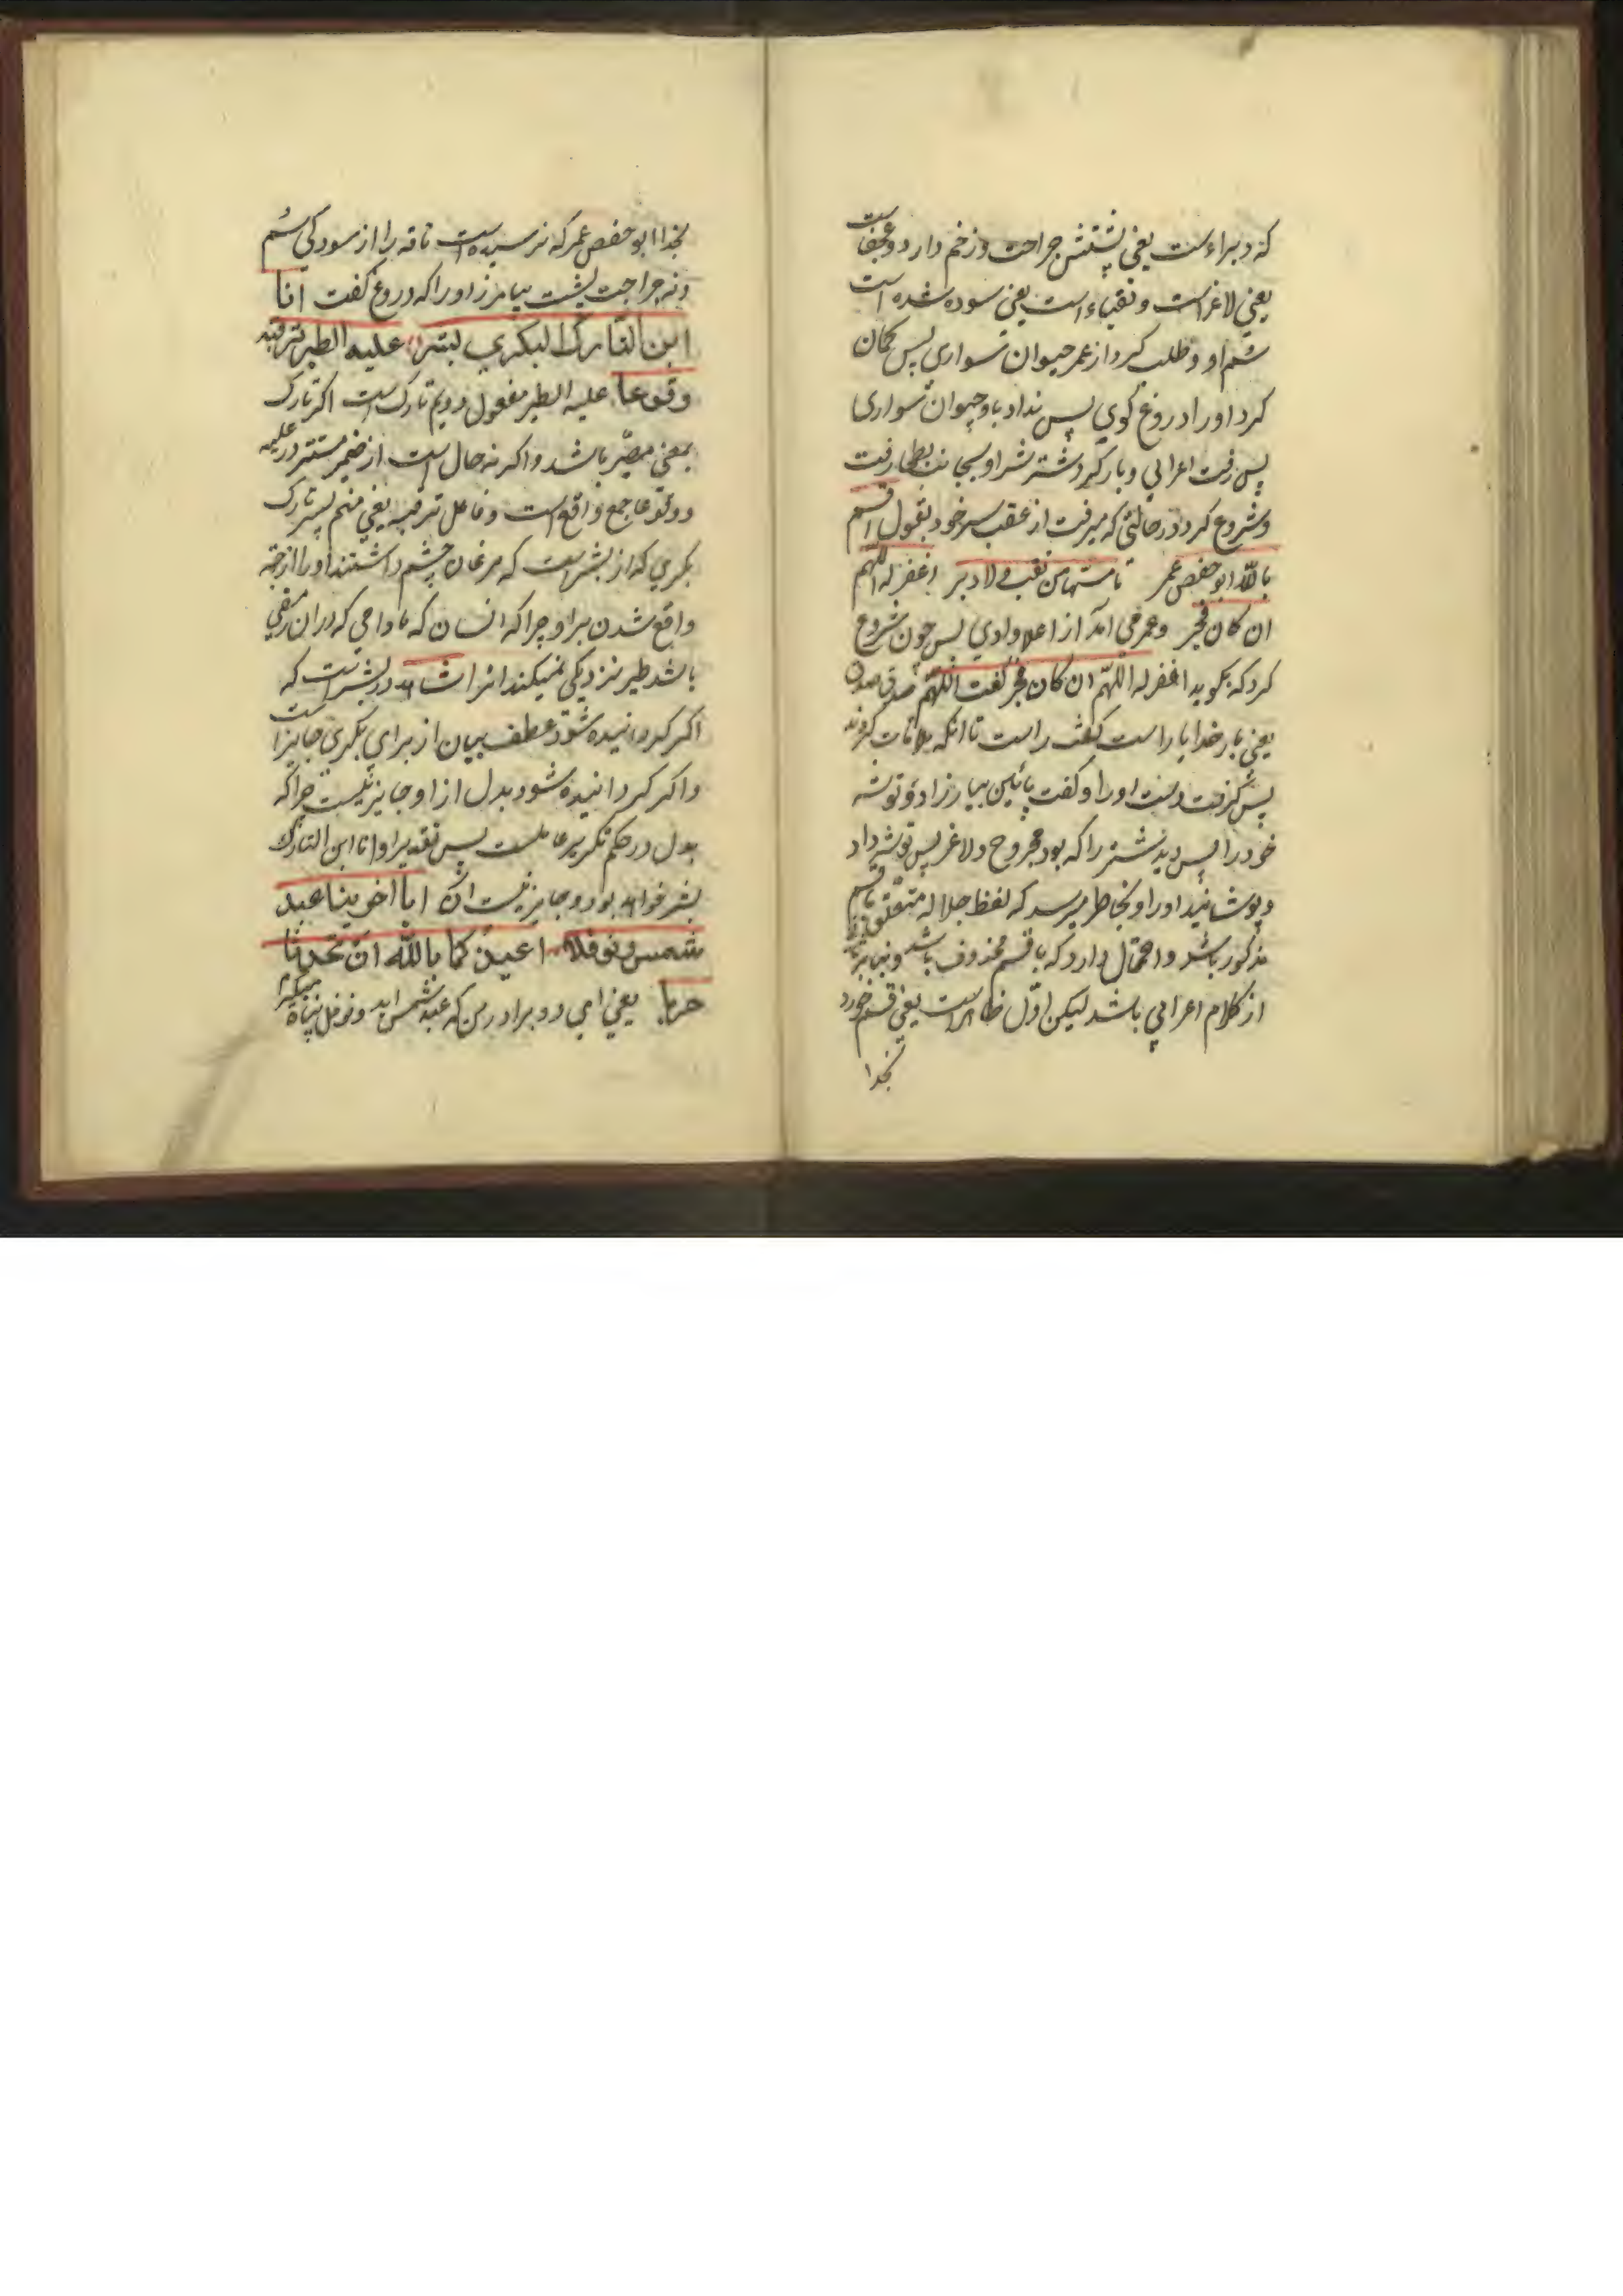 که دبراءست یعنی پشتش جراحت و زخم دارد و عجفاست
یعنی لاغراست و نقباءاست یعنی سوده شده است
سُم او و طلب کرد از عمر حیوان سواری پس کمان
کرد اورا دروغ کوی پس نداد باو حیوان سواری
پس رفت اعرابی و بار کرد شتر او بجانب بطحا رفت
و شروع کرد در حالتی که میرفت از عقب سر خود بقول اقسم
بالله ابو حفص عمر ما مسّها من نقب ولا دبر اغفر له اللّهم
ان کان فجر و عمر می آمد از اعلا وادی پس چون شروع
کرد که بکوید اغفر له اللّهم ان کان فجر گفت اللّهم صدق صدق
یعنی بار خدایا راست گفت راست تا انکه ملاقات کردند
پس گرفت دست اورا و گفت پائین بیار زاد و توشه
خود را پس دید شتر را که بود مجروح و لاغر پس توشه داد
و پوشانید اورا و بخاطر میرسد که لفظ جلاله متعلق باقسم
مذکور باشد و احتمال دارد که باقسم محذوف باشد و
از کلام اعرابی باشد لیکن اوّل ظاهراست یعنی قسم خورد
بخدا
بخدا ابو حفص عمر که نرسیده است ناقه را از سودکی سُم
و نه جراحت پشت بیامرز اورا که دروغ گفت انا
ابن التارك البكري بشر عليه الطير ترقبه
وقوعا علیه الطیر مفعول دویم تارک است اکر تارک
بمعنی مصیّر باشد و اکر نه حال است از ضمیر مستتر در علیه
و وقوعا جمع واقع است و فاعل ترقبه یعنی منم پسر تارک
بکری که از بشر است که مرغان چشم داشتند اورا از جهة
واقع شدن براو چرا که انسان که مادامی که در ان رمقی
باشد طیر نزدیکی نمیکند انرا شاهد در بشر است که
اکر کردانیده شود عطف بیان از برای بکری جایز است
و اکر کردانیده شود بدل از او جایز نیست چرا که
بدل در حکم تکریر عامل است پس تقدیر او انا ابن التارک
بشر خواهد بود و جایز نیست ان ایا اخوینا عبد
شمس و نوفلا اعیذکما بالله ان تحدثا
حربا یعنی ای دو برادر من که عبد شمس اید و نوفل پناه میکیرم